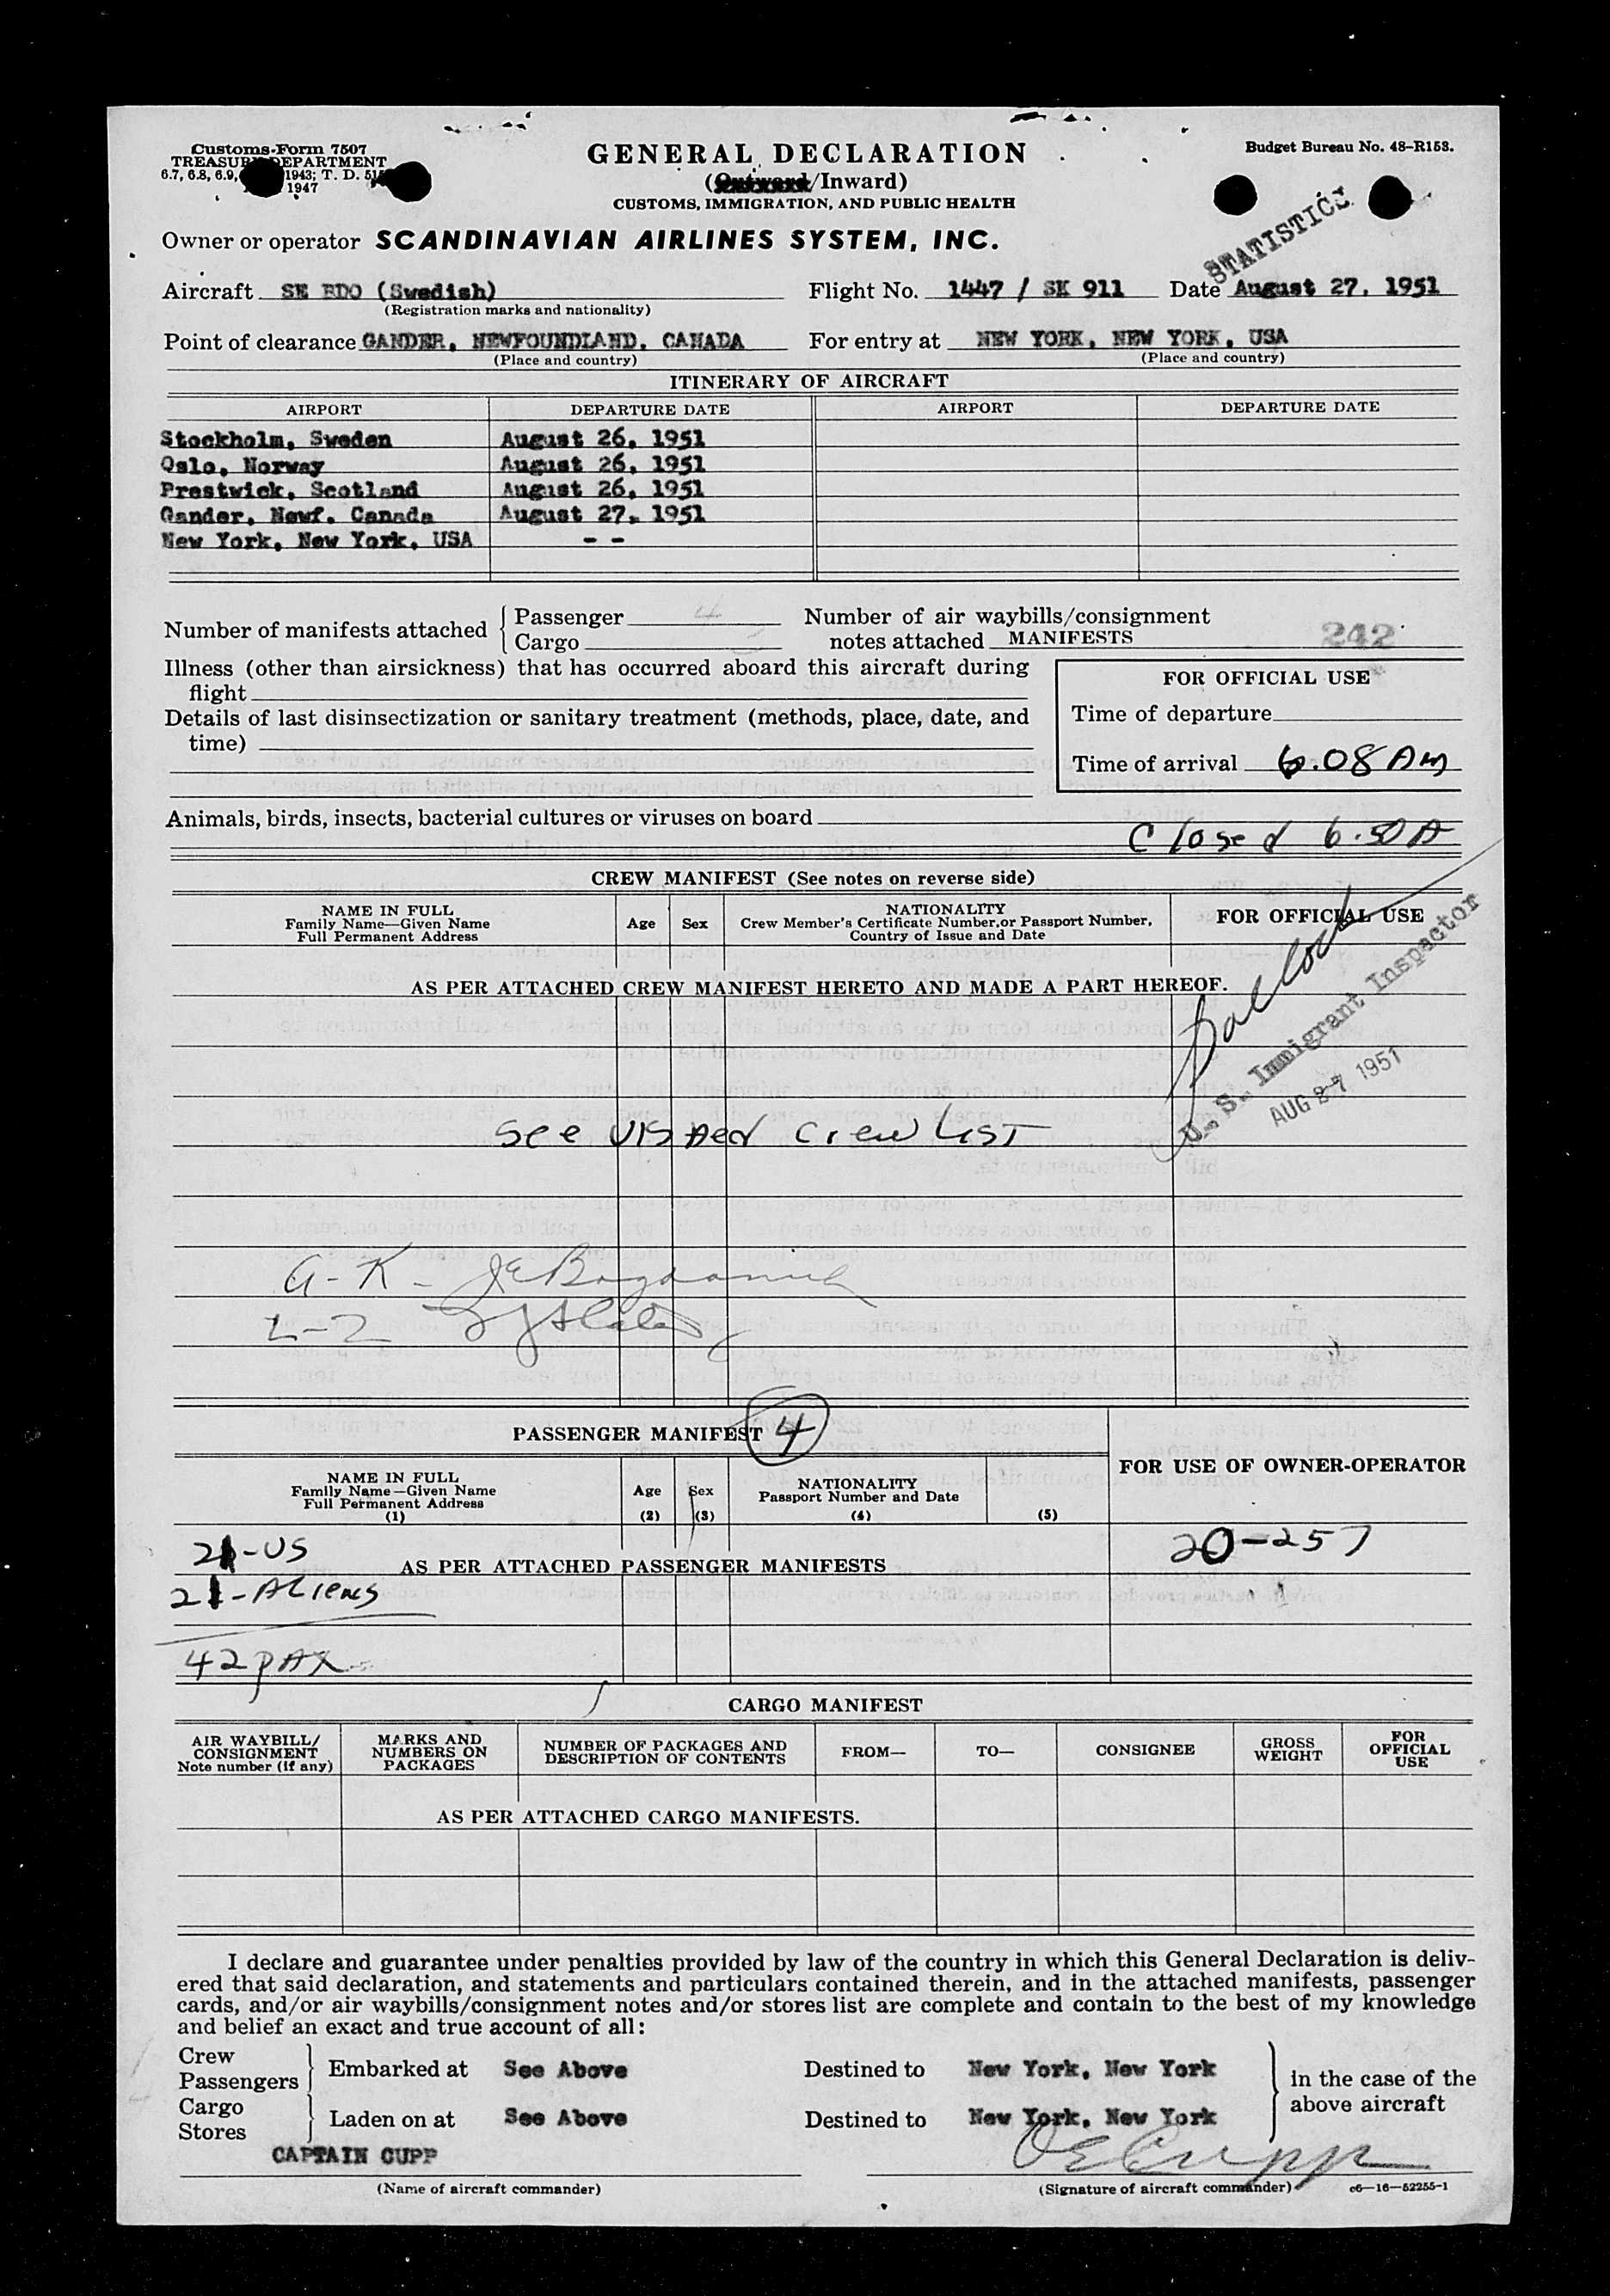 Customs Form 7507
TREASURY DEPARTMENT
6.7, 6.8, 6.9, 1943; T. D. 51
1947
GENERAL DECLARATION
(Outward/Inward)
CUSTOMS, IMMIGRATION, AND PUBLIC HEALTH
Budget Bureau No. 48-R153.
STATISTICS
Owner or operator SCANDINAVIAN AIRLINES SYSTEM, INC.
Aircraft SE BDO (Swedish) Flight No. 1447 / SK 911 Date August 27, 1951
(Registration marks and nationality)
Point of clearance GANDER, NEWFOUNDLAND, CANADA For entry at NEW YORK, NEW YORK, USA
(Place and country) (Place and country)
ITINERARY OF AIRCRAFT
AIRPORT DEPARTURE DATE AIRPORT DEPARTURE DATE
Stockholm, Sweden August 26, 1951
Oslo, Norway August 26, 1951
Prestwick, Scotland August 26, 1951
Gander, Newf. Canada August 27, 1951
New York, New York, USA - -
Number of manifests attached { Passenger 4
Cargo
Number of air waybills/consignment
notes attached MANIFESTS 242
Illness (other than airsickness) that has occurred aboard this aircraft during
flight
Details of last disinsectization or sanitary treatment (methods, place, date, and
time)
FOR OFFICIAL USE
Time of departure
Time of arrival 6.08 AM
Animals, birds, insects, bacterial cultures or viruses on board
Closed 6.50 A
CREW MANIFEST (See notes on reverse side)
NAME IN FULL
Family Name—Given Name
Full Permanent Address
Age
Sex
NATIONALITY
Crew Member's Certificate Number, or Passport Number,
Country of Issue and Date
FOR OFFICIAL USE
AS PER ATTACHED CREW MANIFEST HERETO AND MADE A PART HEREOF.
U. S. Immigrant Inspector
AUG 27 1951
See VISAed Crew LIST
G-K-
L-2
PASSENGER MANIFEST 4
FOR USE OF OWNER-OPERATOR
NAME IN FULL
Family Name—Given Name
Full Permanent Address
(1)
Age
(2)
Sex
(3)
NATIONALITY
Passport Number and Date
(4)
(5)
20-257
21-US
AS PER ATTACHED PASSENGER MANIFESTS
21-Aliens
42 PAX
CARGO MANIFEST
AIR WAYBILL/
CONSIGNMENT
Note number (if any)
MARKS AND
NUMBERS ON
PACKAGES
NUMBER OF PACKAGES AND
DESCRIPTION OF CONTENTS
FROM—
TO—
CONSIGNEE
GROSS
WEIGHT
FOR
OFFICIAL
USE
AS PER ATTACHED CARGO MANIFESTS.
I declare and guarantee under penalties provided by law of the country in which this General Declaration is deliv-
ered that said declaration, and statements and particulars contained therein, and in the attached manifests, passenger
cards, and/or air waybills/consignment notes and/or stores list are complete and contain to the best of my knowledge
and belief an exact and true account of all:
Crew
Passengers } Embarked at See Above Destined to New York, New York
Cargo
Stores } Laden on at See Above Destined to New York, New York
in the case of the
above aircraft
CAPTAIN CUPP
OE Cupp
(Name of aircraft commander) (Signature of aircraft commander) c6—16—52255-1